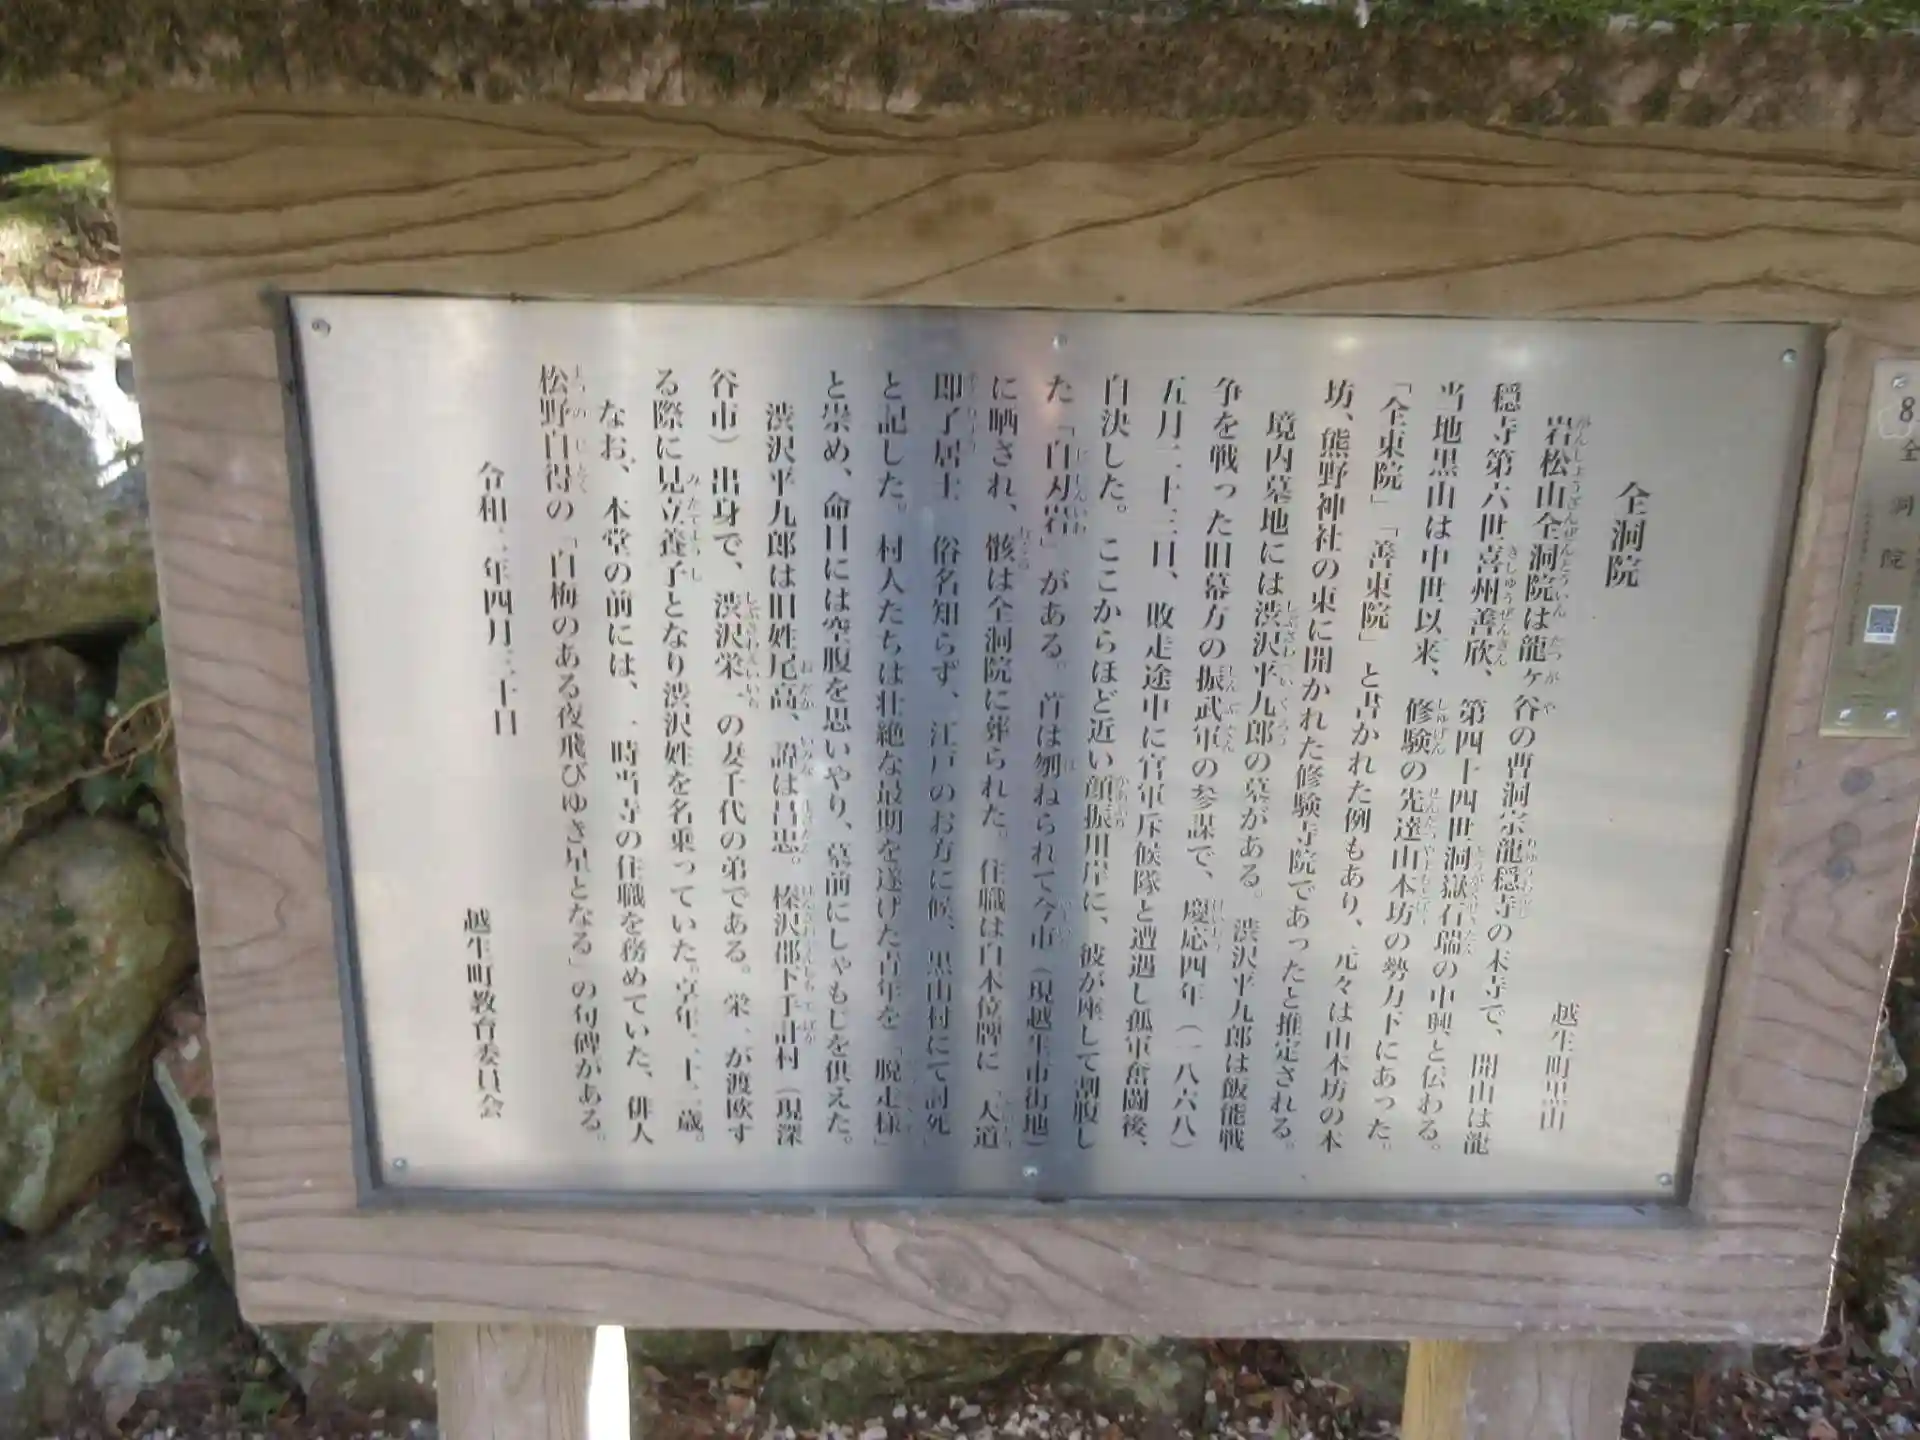 全洞院
越生町黒山
岩松山全洞院は龍ヶ谷の曹洞宗龍穏寺の末寺で、開山は龍
穏寺第六世喜州善欣、第四十四世洞嶽石瑞の中興と伝わる。
当地黒山は中世以来、修験の先達山本坊の勢力下にあった。
「全東院」「善東院」と書かれた例もあり、元々は山本坊の本
坊、熊野神社の東に開かれた修験寺院であったと推定される。
境内墓地には渋沢平九郎の墓がある。渋沢平九郎は飯能戦
争を戦った旧幕方の振武軍の参謀で、慶応四年（一八六八）
五月二十三日、敗走途中に官軍斥候隊と遭遇し孤軍奮闘後、
自決した。ここからほど近い顔振川岸に、彼が座して割腹し
た「自刃岩」がある。首は刎ねられて今市（現越生市街地）
に晒され、骸は全洞院に葬られた。住職は白木位牌に「大道
即了居士　俗名知らず、江戸のお方に候、黒山村にて討死」
と記した。村人たちは壮絶な最期を遂げた青年を「脱走様」
と崇め、命日には空腹を思いやり、墓前にしゃもじを供えた。
渋沢平九郎は旧姓尾高、諱は昌忠。榛沢郡下手計村（現深
谷市）出身で、渋沢栄一の妻千代の弟である。栄一が渡欧す
る際に見立養子となり渋沢姓を名乗っていた。享年二十二歳。
なお、本堂の前には、一時当寺の住職を務めていた、俳人
松野自得の「白梅のある夜飛びゆき星となる」の句碑がある。
令和二年四月三十日
越生町教育委員会
8
全洞院